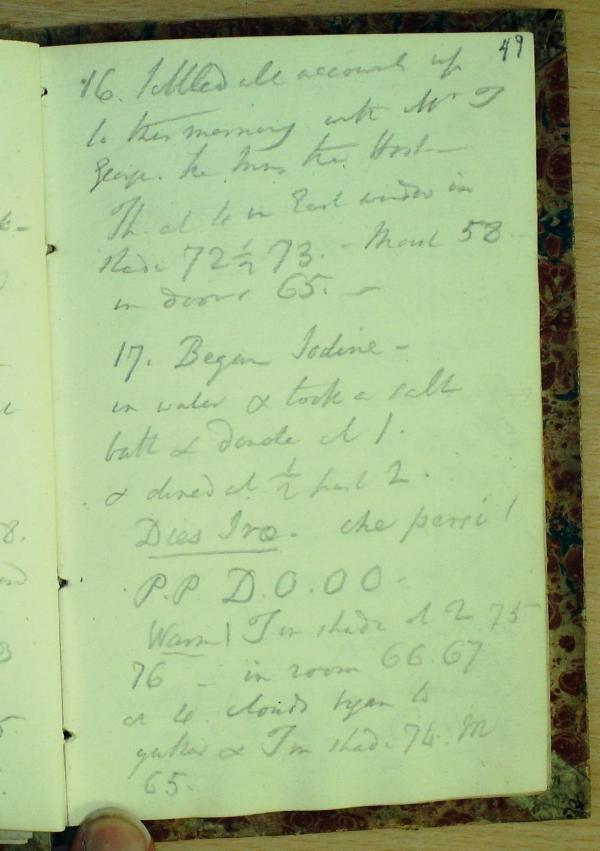 49
16. Settled all accounts up
to this morning with Mr T
George. he the Host -
Th at 4 in East window in
shade 72½ 73. - 58 -
in doors 65. -
17. Began Iodine -
in water & took a salt
bath & douche at 1.
& dined at ½ past 2.
Dies Iræ. che persi!
P.P D.O.O O.
Warm! T in shade at 2 75
76 - in room 66 67
at 4. clouds began to
gather & T in shade 74. M
65.